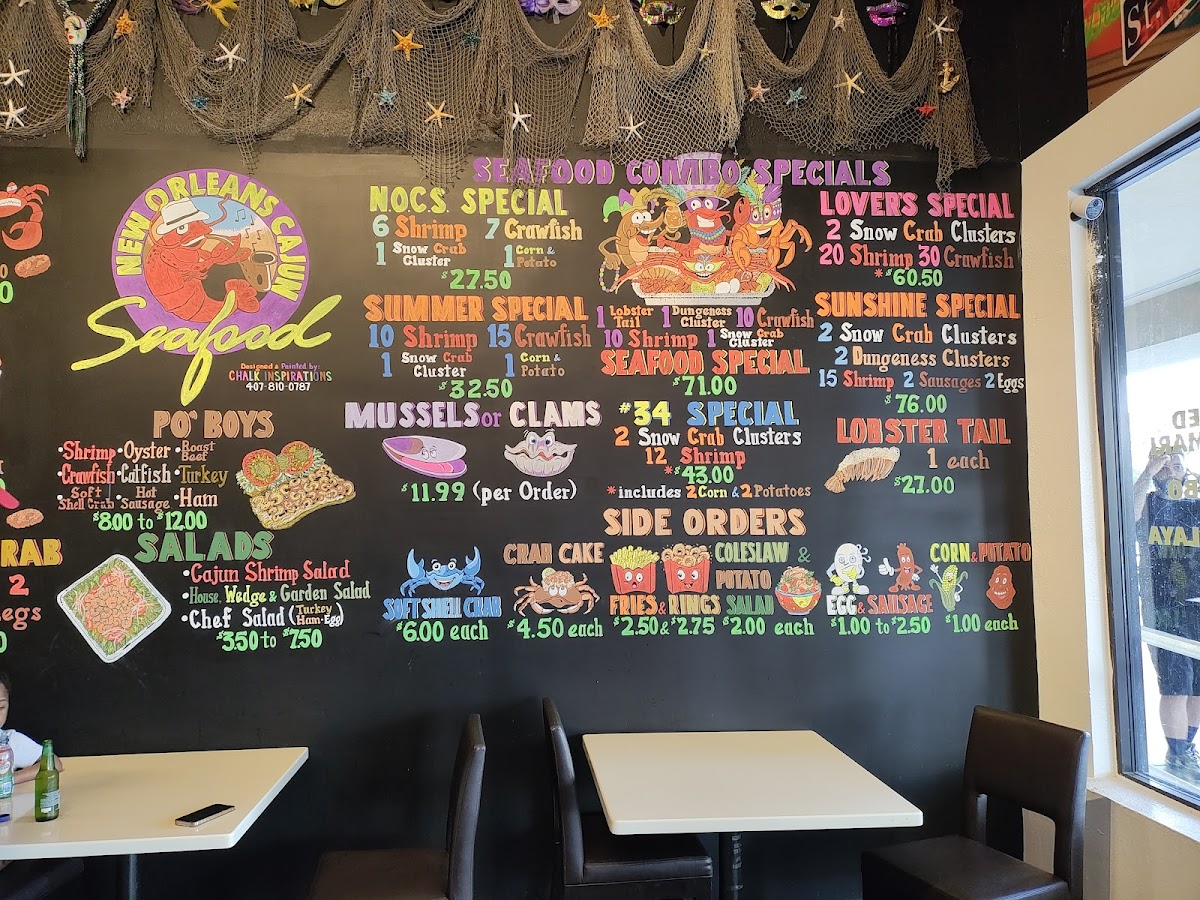 St.
NEW ORLEANS CAJUN
Seafood
Designed & Painted by:
CHALK INSPIRATIONS
407-810-0787
SEAFOOD COMBO SPECIALS
NOCS SPECIAL
6 Shrimp 7 Crawfish
1 Snow Crab Cluster 1 Corn & Potato
$27.50
SUMMER SPECIAL
10 Shrimp 15 Crawfish
1 Snow Crab Cluster 1 Corn & Potato
$32.50
1 Lobster Tail 1 Dungeness Cluster 10 Crawfish
10 Shrimp 1 Snow Crab Cluster
SEAFOOD SPECIAL
$71.00
LOVER'S SPECIAL
2 Snow Crab Clusters
20 Shrimp 30 Crawfish
*$60.50
SUNSHINE SPECIAL
2 Snow Crab Clusters
2 Dungeness Clusters
15 Shrimp 2 Sausages 2 Eggs
$76.00
PO' BOYS
•Shrimp •Oyster •Roast Beef
•Crawfish •Catfish •Turkey
•Soft Shell Crab •Hot Sausage •Ham
$8.00 to $12.00
MUSSELS or CLAMS
$11.99 (per Order)
#34 SPECIAL
2 Snow Crab Clusters
12 Shrimp
*$43.00
*includes 2 Corn & 2 Potatoes
LOBSTER TAIL
1 each
$27.00
SALADS
•Cajun Shrimp Salad
•House, Wedge & Garden Salad
•Chef Salad (Turkey Ham-Egg)
$3.50 to $7.50
SIDE ORDERS
SOFT SHELL CRAB
$6.00 each
CRAB CAKE
$4.50 each
FRIES & RINGS
$2.50 & $2.75
COLESLAW &
POTATO
SALAD
$2.00 each
EGG & SAUSAGE
$1.00 to $2.50
CORN & POTATO
$1.00 each
RAB
2
egs
0
0